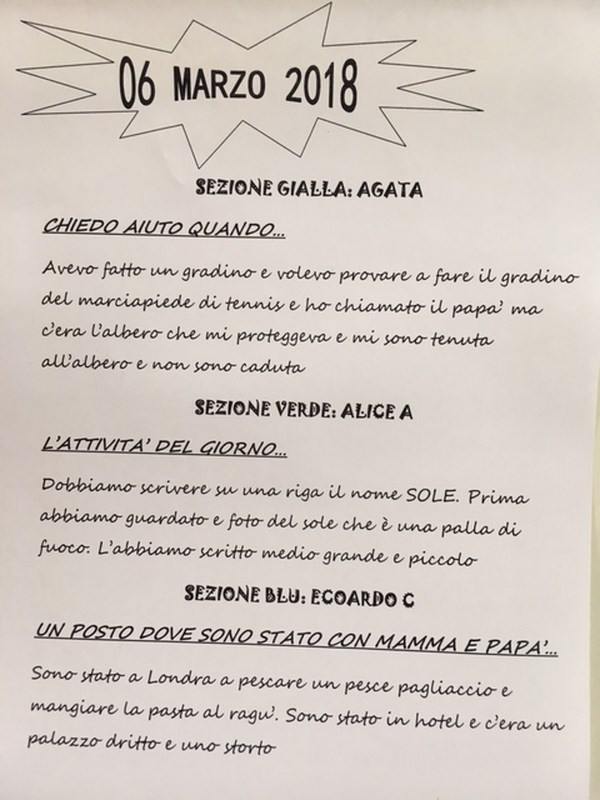 06 MARZO 2018
SEZIONE GIALLA: AGATA
CHIEDO AIUTO QUANDO...
Avevo fatto un gradino e volevo provare a fare il gradino
del marciapiede di tennis e ho chiamato il papa' ma
c'era l'albero che mi proteggeva e mi sono tenuta
all'albero e non sono caduta
SEZIONE VERDE: ALICE A
L'ATTIVITA' DEL GIORNO...
Dobbiamo scrivere su una riga il nome SOLE. Prima
abbiamo guardato e foto del sole che è una palla di
fuoco. L'abbiamo scritto medio grande e piccolo
SEZIONE BLU: EGOARDO G
UN POSTO DOVE SONO STATO CON MAMMA E PAPA'...
Sono stato a Londra a pescare un pesce pagliaccio e
mangiare la pasta al ragu'. Sono stato in hotel e c'era un
palazzo dritto e uno storto